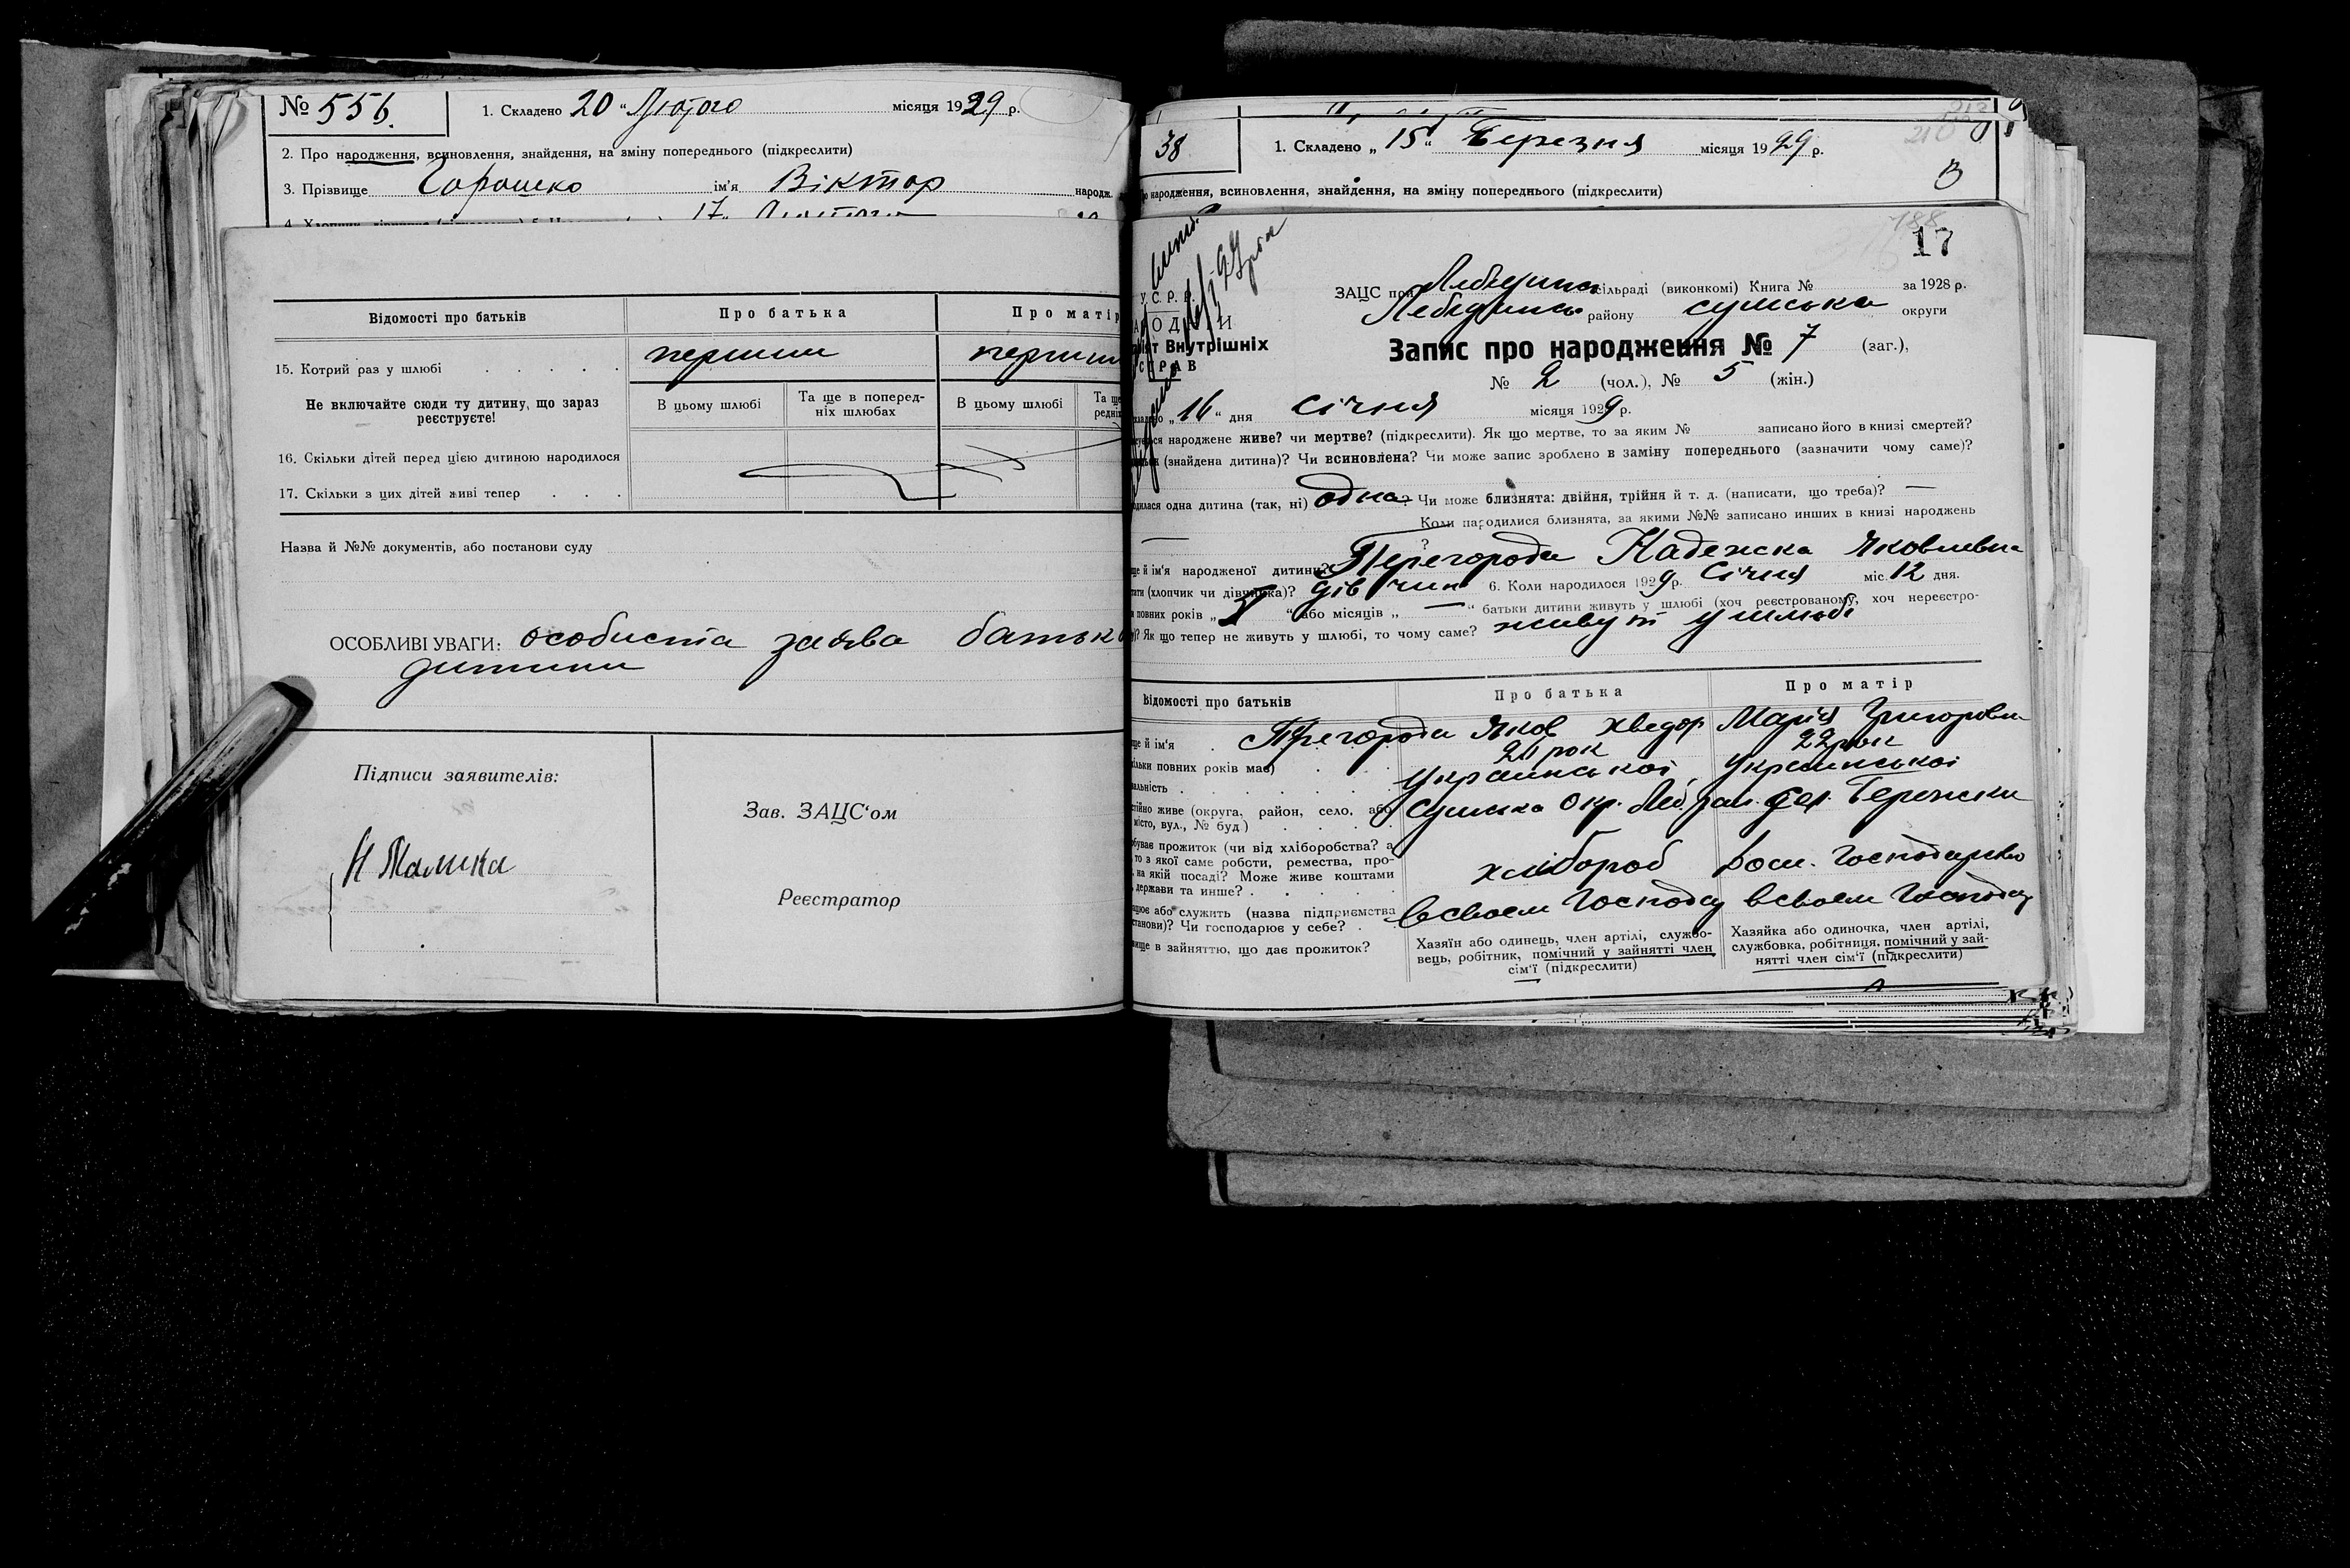 № 556. 1. Складено 20 "Лютого місяця 1929 р.
2. Про народження, всиновлення, знайдення, на зміну попереднього (підкреслити)
3. Прізвище Горошко ім'я Віктор народж.
17 Лютого
Відомості про батьків Про батька Про матір
15. Котрий раз у шлюбі перший
Не включайте сюди ту дитину, що зараз реєструєте!
В цьому шлюбі Та ще в поперед-ніх шлюбах В цьому шлюбі Та ще
16. Скільки дітей перед цією дитиною народилося
17. Скільки з цих дітей живі тепер
Назва й №№ документів, або постанови суду
ОСОБЛИВІ УВАГИ: особиста заява батька
дитини
Підписи заявителів:
Зав. ЗАЦС'ом
Реєстратор
38 1. Складено „ 15 " Березня місяця 1929 р.
народження, всиновлення, знайдення, на зміну попереднього (підкреслити)
В
188
17
ЗАЦС при Лебединс сільраді (виконкомі) Книга № за 1928 р.
У. С. Р. Р.
Лебединс району сумська округи
Внутрішніх
СПРАВ
Запис про народження № 7 (заг.),
№ 2 (чол.), № 5 (жін.)
„ 16 " дня січня місяця 1929 р.
народжене живе? чи мертве? (підкреслити). Як що мертве, то за яким № записано його в книзі смертей?
(знайдена дитина)? Чи всиновлена? Чи може запис зроблено в заміну попереднього (зазначити чому саме)?
одна дитина (так, ні) одна? Чи може близнята: двійня, трійня й т. д. (написати, що треба)? —
Коли народилися близнята, за якими №№ записано инших в книзі народжень
— ?
й ім'я народженої дитини? Перегорода Надежска Яковлевна
(хлопчик чи дівчинка)? дівчин 6. Коли народилося 1929 р. Січня міс. 12 дня.
повних років „ " або місяців „ — " батьки дитини живуть у шлюбі (хоч реєстрованому, хоч нереєстро-
? Як що тепер не живуть у шлюбі, то чому саме? живут у шлюбі
Відомості про батьків Про батька Про матір
й ім'я Перегорода Яков Хведор. Марія Григоровна
повних років має) 21 рок 22 рок
Украинської Украинської
живе (округа, район, село, або місто, вул., № буд.) Сумска окр. Леб. рай. сел.
прожиток (чи від хліборобства? а
то з якої саме роботи, ремества, про-
на якій посаді? Може живе коштами
держави та инше?
хлібороб дом. господарство
або служить (назва підприємства
Чи господарює у себе?
всвоем господар всвоем господар
в зайняттю, що дає прожиток?
Хазяїн або одинець, член артілі, службо-
вець, робітник, помічний у зайнятті член
сім'ї (підкреслити)
Хазяйка або одиночка, член артілі,
службовка, робітниця, помічний у зай-
нятті член сім'ї (підкреслити)